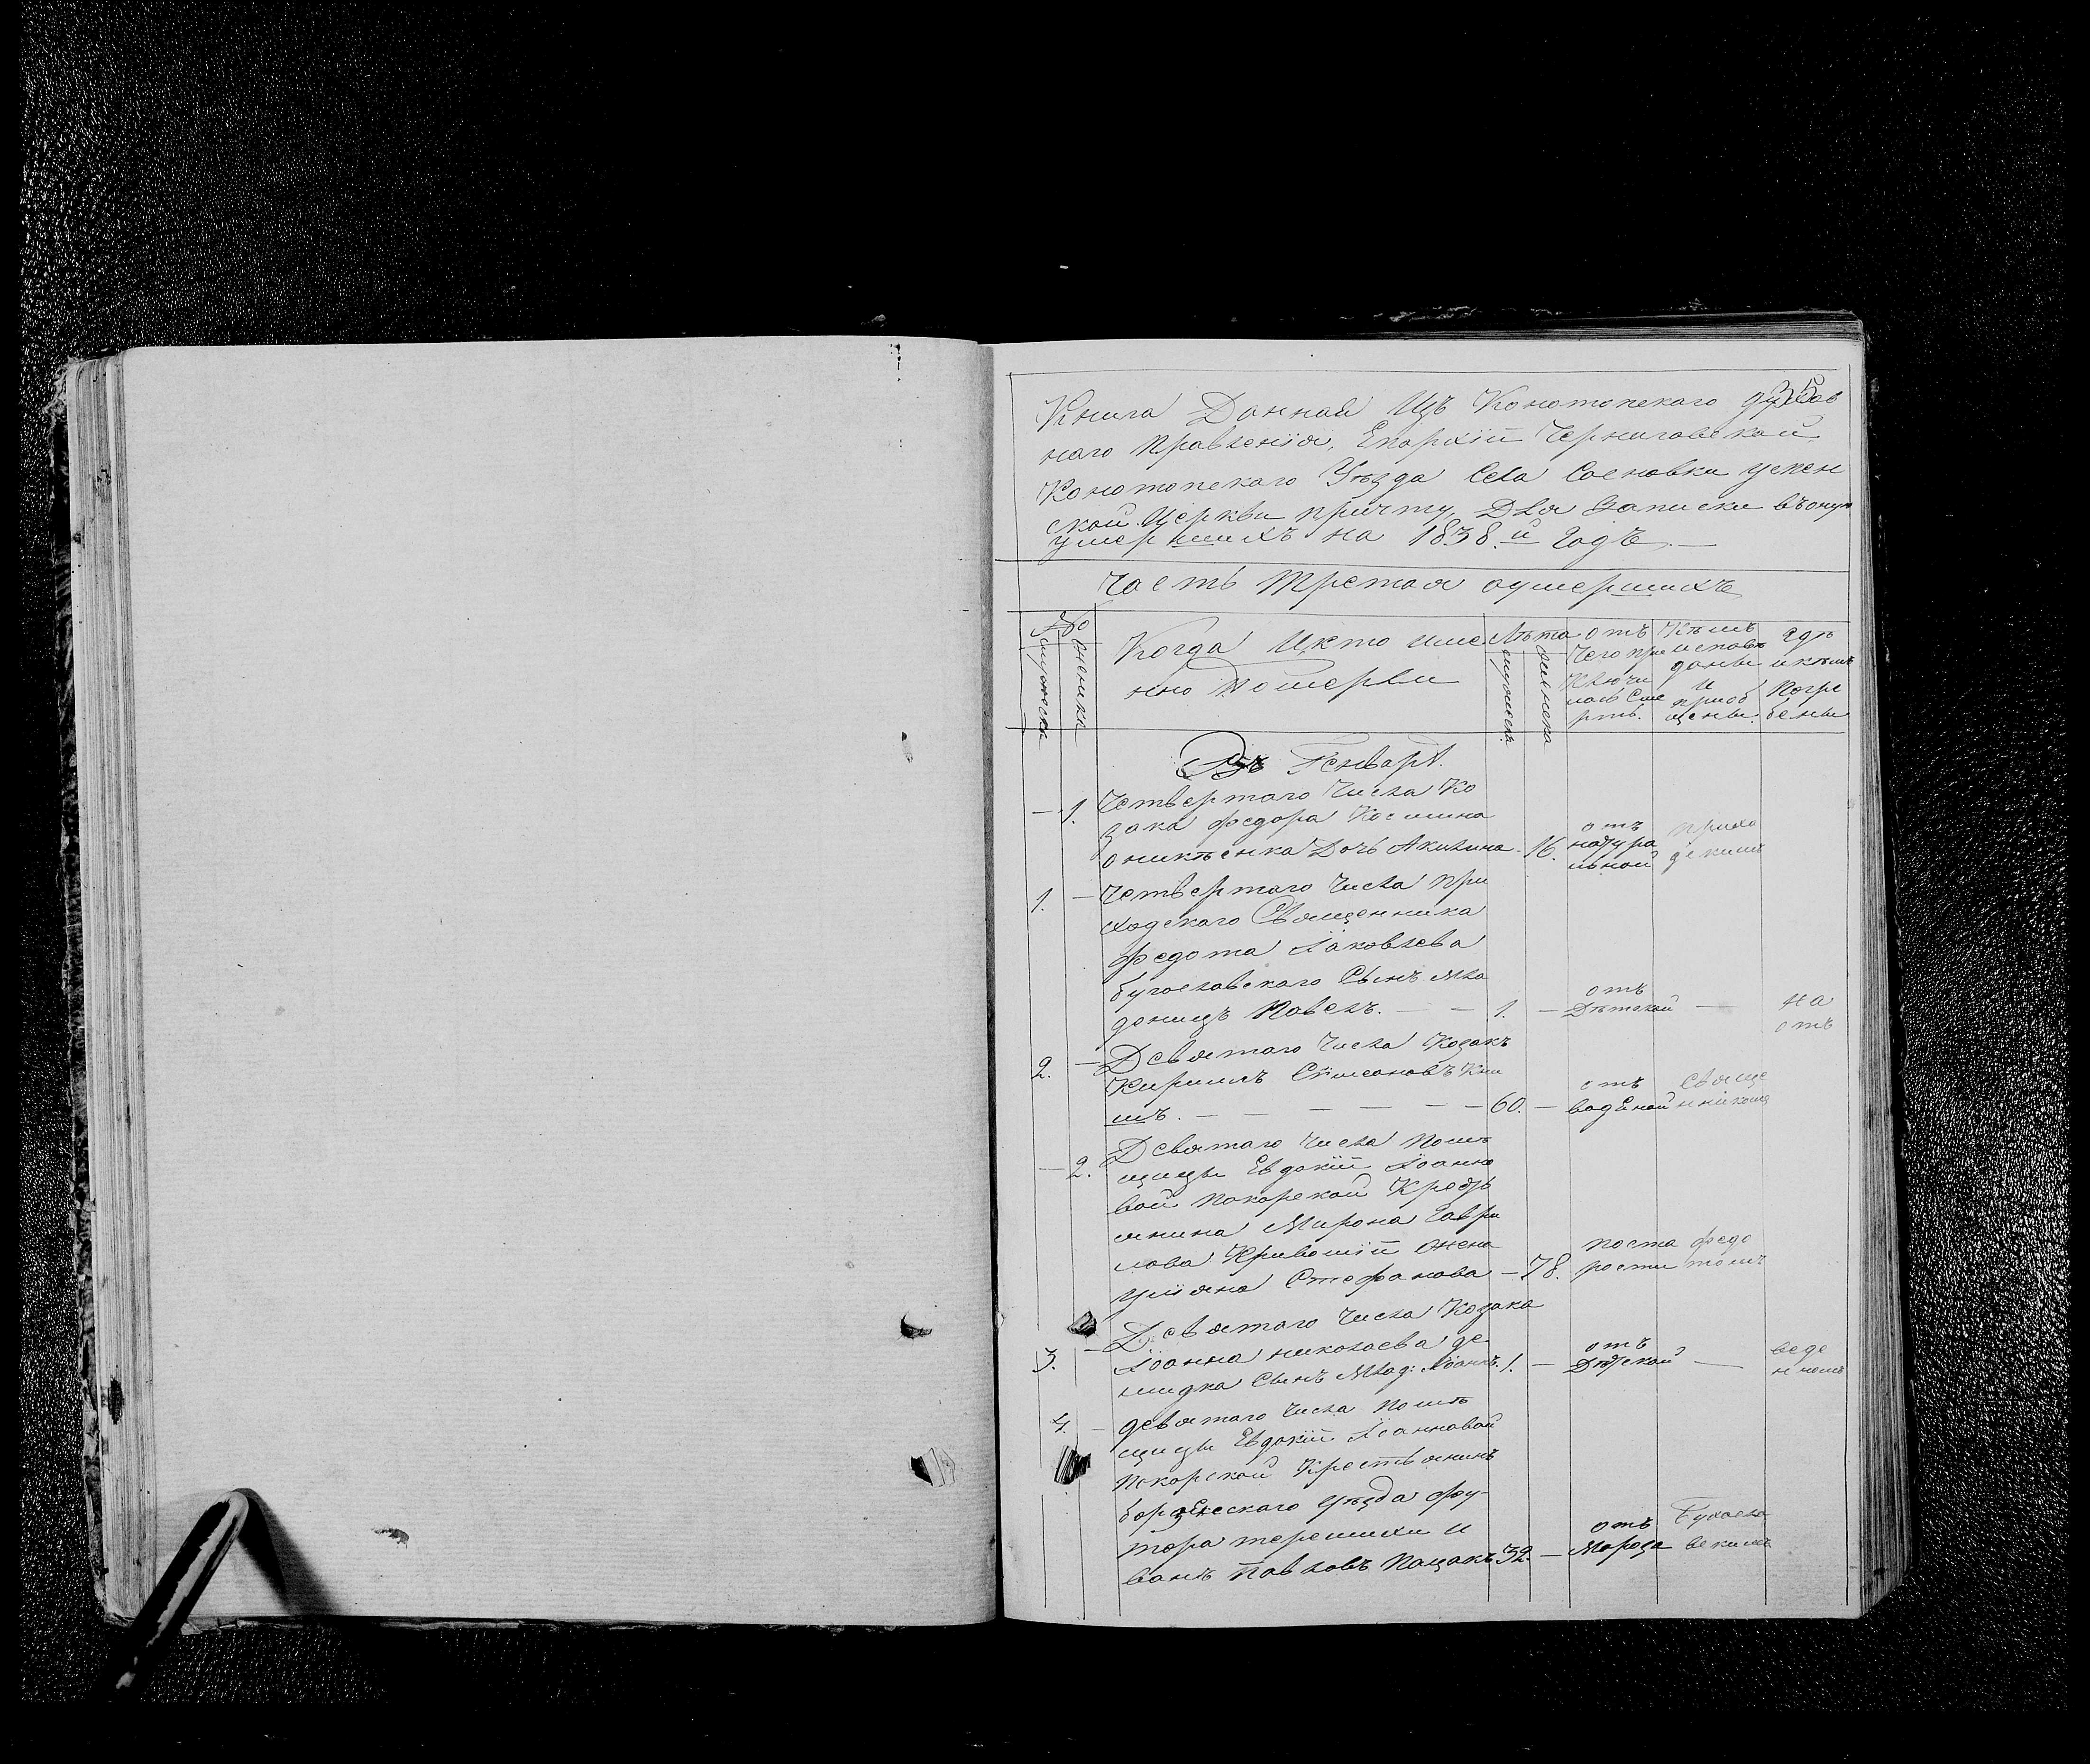 35
Книга Данной Изъ Конотопскаго духов
наго Правленія, Епархіи Черниговской
Конотопскаго Уезда Села Сосновки успен
ской Церкви причту, Для Записки въоную
умершихъ на 1838.й Годъ.—
Часть Третая оумершихъ
№
мужеска
женска
Когда Икто име
нно Померли
Лѣта
мужеска
женска
отъ
Чего при
ключи
лась Сме
рть.
Кѣмъ
исповѣ
даны
И
приоб
щены.
гдѣ
икѣмъ
Погре
бены
Въ Генварѣ.
—1. Четвертаго Числа Ко
зака Федора Космина
оникѣенка Дочь Акилина — 16. отъ натура льной прихо дскимъ
1. — Четвертаго Числа При
ходскаго Священника
Федота Іаковлева
бугославскаго Сынъ мла
денецъ Павелъ. — — 1. — отъ Дѣтской — на
отъ
2. — Девятаго Числа Козакъ
Кирилъ Сѵмеоновъ Кни
шъ. — — — — — — 60. — отъ водяной Свяще нникомъ
—2. Девятаго Числа Помѣ
щицы Евдокіи Іоанно
вой Покорской Кресть
янина Мирона Гаври
лова Кривошіи Жена
уліяна Стефанова — 78. поста рости Федо томъ
3. — Девятаго Числа Козака
Іоанна николаева де
мидка Сынъ Млад: Іоаннъ. 1. — отъ Дѣтской — веде
нномъ
4. — девятаго Числа помѣ
щицы Евдокіи Іоанновой
Покорской Крестьянинъ
борзенскаго уѣзда фу-
тора терешихи И
ванъ Павловъ Пацакъ 32. — отъ Мороза Бугосла вскимъ